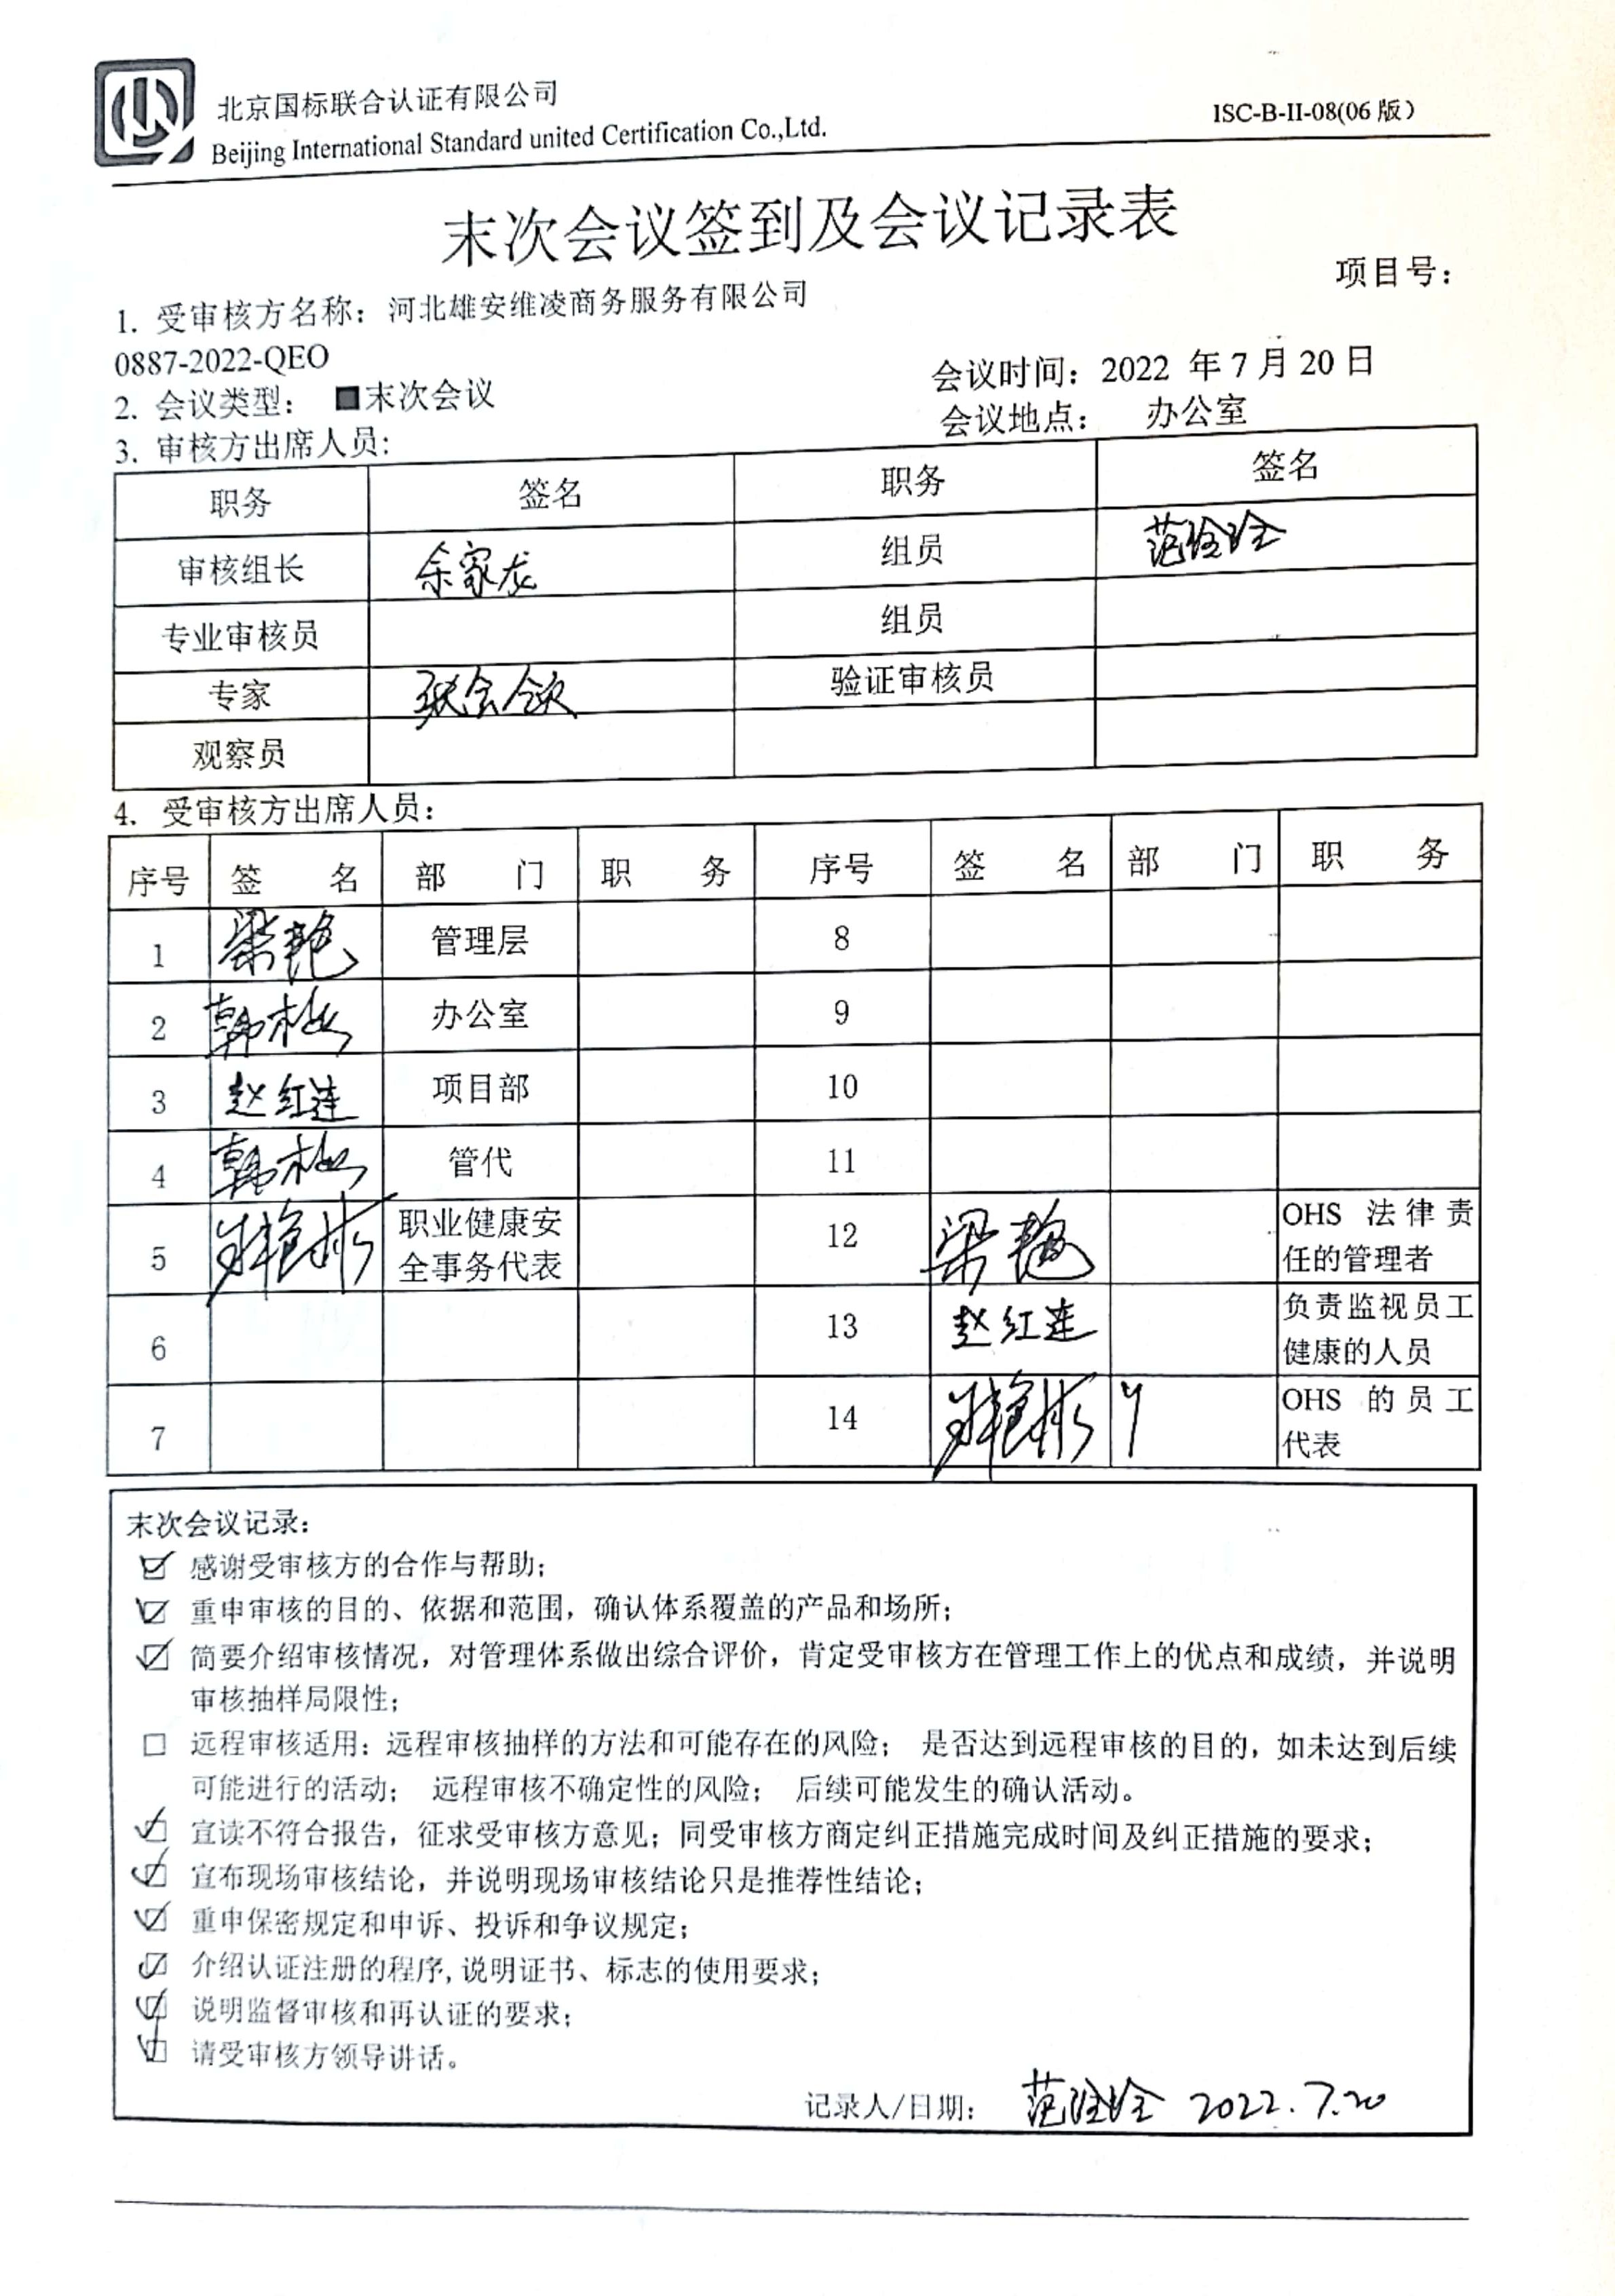 北京国标联合认证有限公司
Beijing International Standard united Certification Co.,Ltd.
ISC-B-II-08(06 版)
末次会议签到及会议记录表
项目号：
1. 受审核方名称：河北雄安维凌商务服务有限公司
0887-2022-QEO
会议时间：2022 年 7 月 20 日
2. 会议类型： ■末次会议
会议地点： 办公室
3. 审核方出席人员：
职务 签名 职务 签名
审核组长 余家龙 组员 范玲玲
专业审核员 组员
专家 验证审核员
观察员
4. 受审核方出席人员：
序号 签 名 部 门 职 务 序号 签 名 部 门 职 务
1 梁艳 管理层 8
2 韩梅 办公室 9
3 赵红连 项目部 10
4 韩梅 管代 11
5 职业健康安
全事务代表
12 梁艳 OHS 法律责
任的管理者
6 13 赵红连 负责监视员工
健康的人员
7 14 OHS 的员工
代表
末次会议记录：
☑ 感谢受审核方的合作与帮助；
☑ 重申审核的目的、依据和范围，确认体系覆盖的产品和场所；
☑ 简要介绍审核情况，对管理体系做出综合评价，肯定受审核方在管理工作上的优点和成绩，并说明
审核抽样局限性；
□ 远程审核适用：远程审核抽样的方法和可能存在的风险； 是否达到远程审核的目的，如未达到后续
可能进行的活动； 远程审核不确定性的风险； 后续可能发生的确认活动。
☑ 宣读不符合报告，征求受审核方意见；同受审核方商定纠正措施完成时间及纠正措施的要求；
☑ 宣布现场审核结论，并说明现场审核结论只是推荐性结论；
☑ 重申保密规定和申诉、投诉和争议规定；
☑ 介绍认证注册的程序,说明证书、标志的使用要求；
☑ 说明监督审核和再认证的要求；
☑ 请受审核方领导讲话。
记录人/日期： 范玲玲 2022.7.20